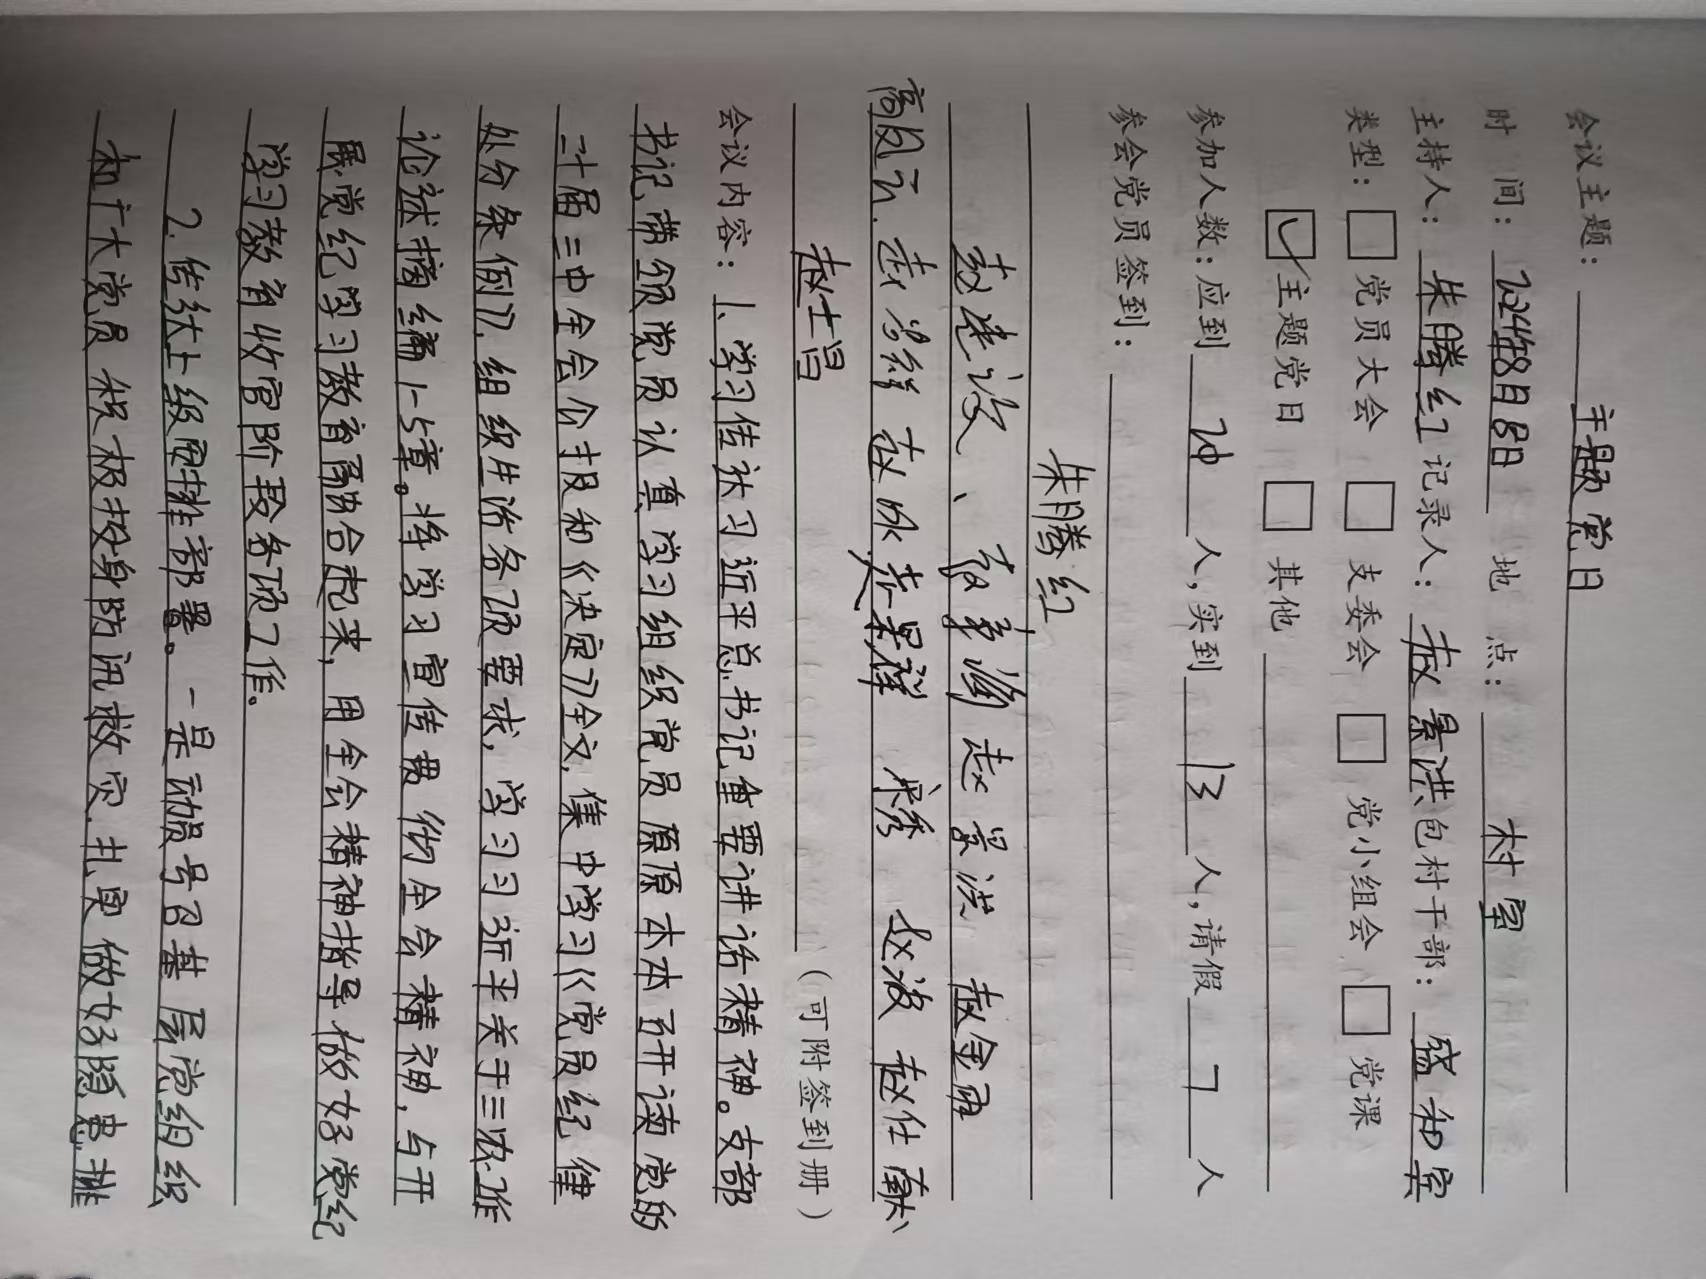 会议主题：主题党日
时 间：2024年8月8日 地 点：村室
主持人：朱腾红 记录人：赵景洪 包村干部：盛和宾
类型：□党员大会 □支委会 □党小组会 □党课
☑主题党日 □其他
参加人数：应到20人，实到13人，请假7人
参会党员签到：
朱腾红
赵建设、赵景洪 赵金雨
高凤云 赵仕献
赵士昌 （可附签到册）
会议内容：1、学习传达习近平总书记重要讲话精神。支部
书记带领党员认真学习组织党员原原本本研读党的
二十届三中全会公报和《决定》全文，集中学习《党员纪律
处分条例》，组织生活各项要求，学习习近平关于三农工作
论述摘编1-5章。将学习宣传贯彻全会精神，与开
展党纪学习教育融合起来，用全会精神指导做好党纪
学习教育收官阶段各项工作。
2.传达上级安排部署。一是动员号召基层党组织
和广大党员积极投身防汛救灾，扎实做好隐患排